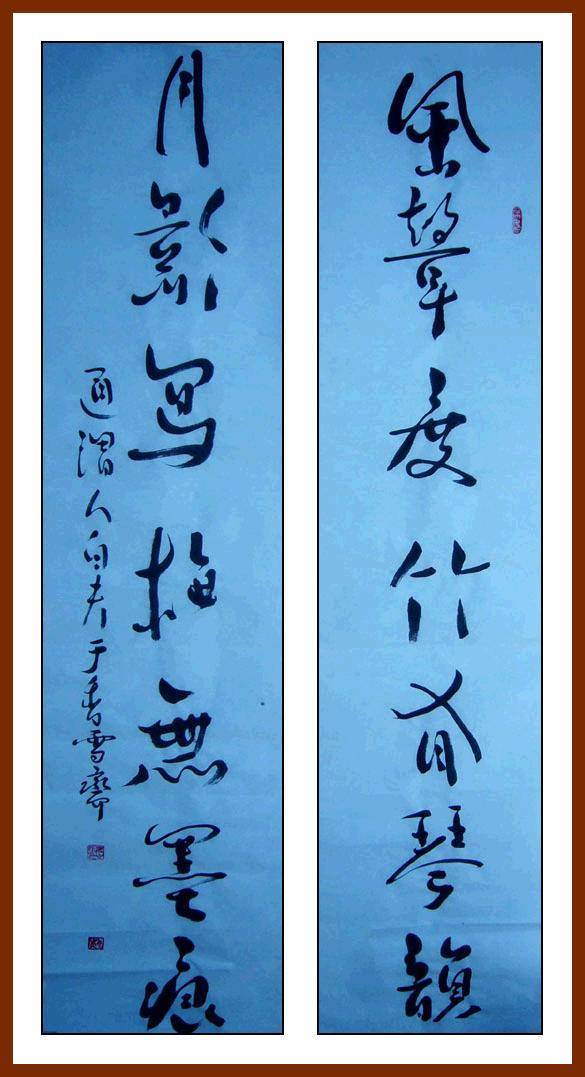 風聲度竹有琴韻
月影寫梅無墨痕
通渭人白夫于香雪齋